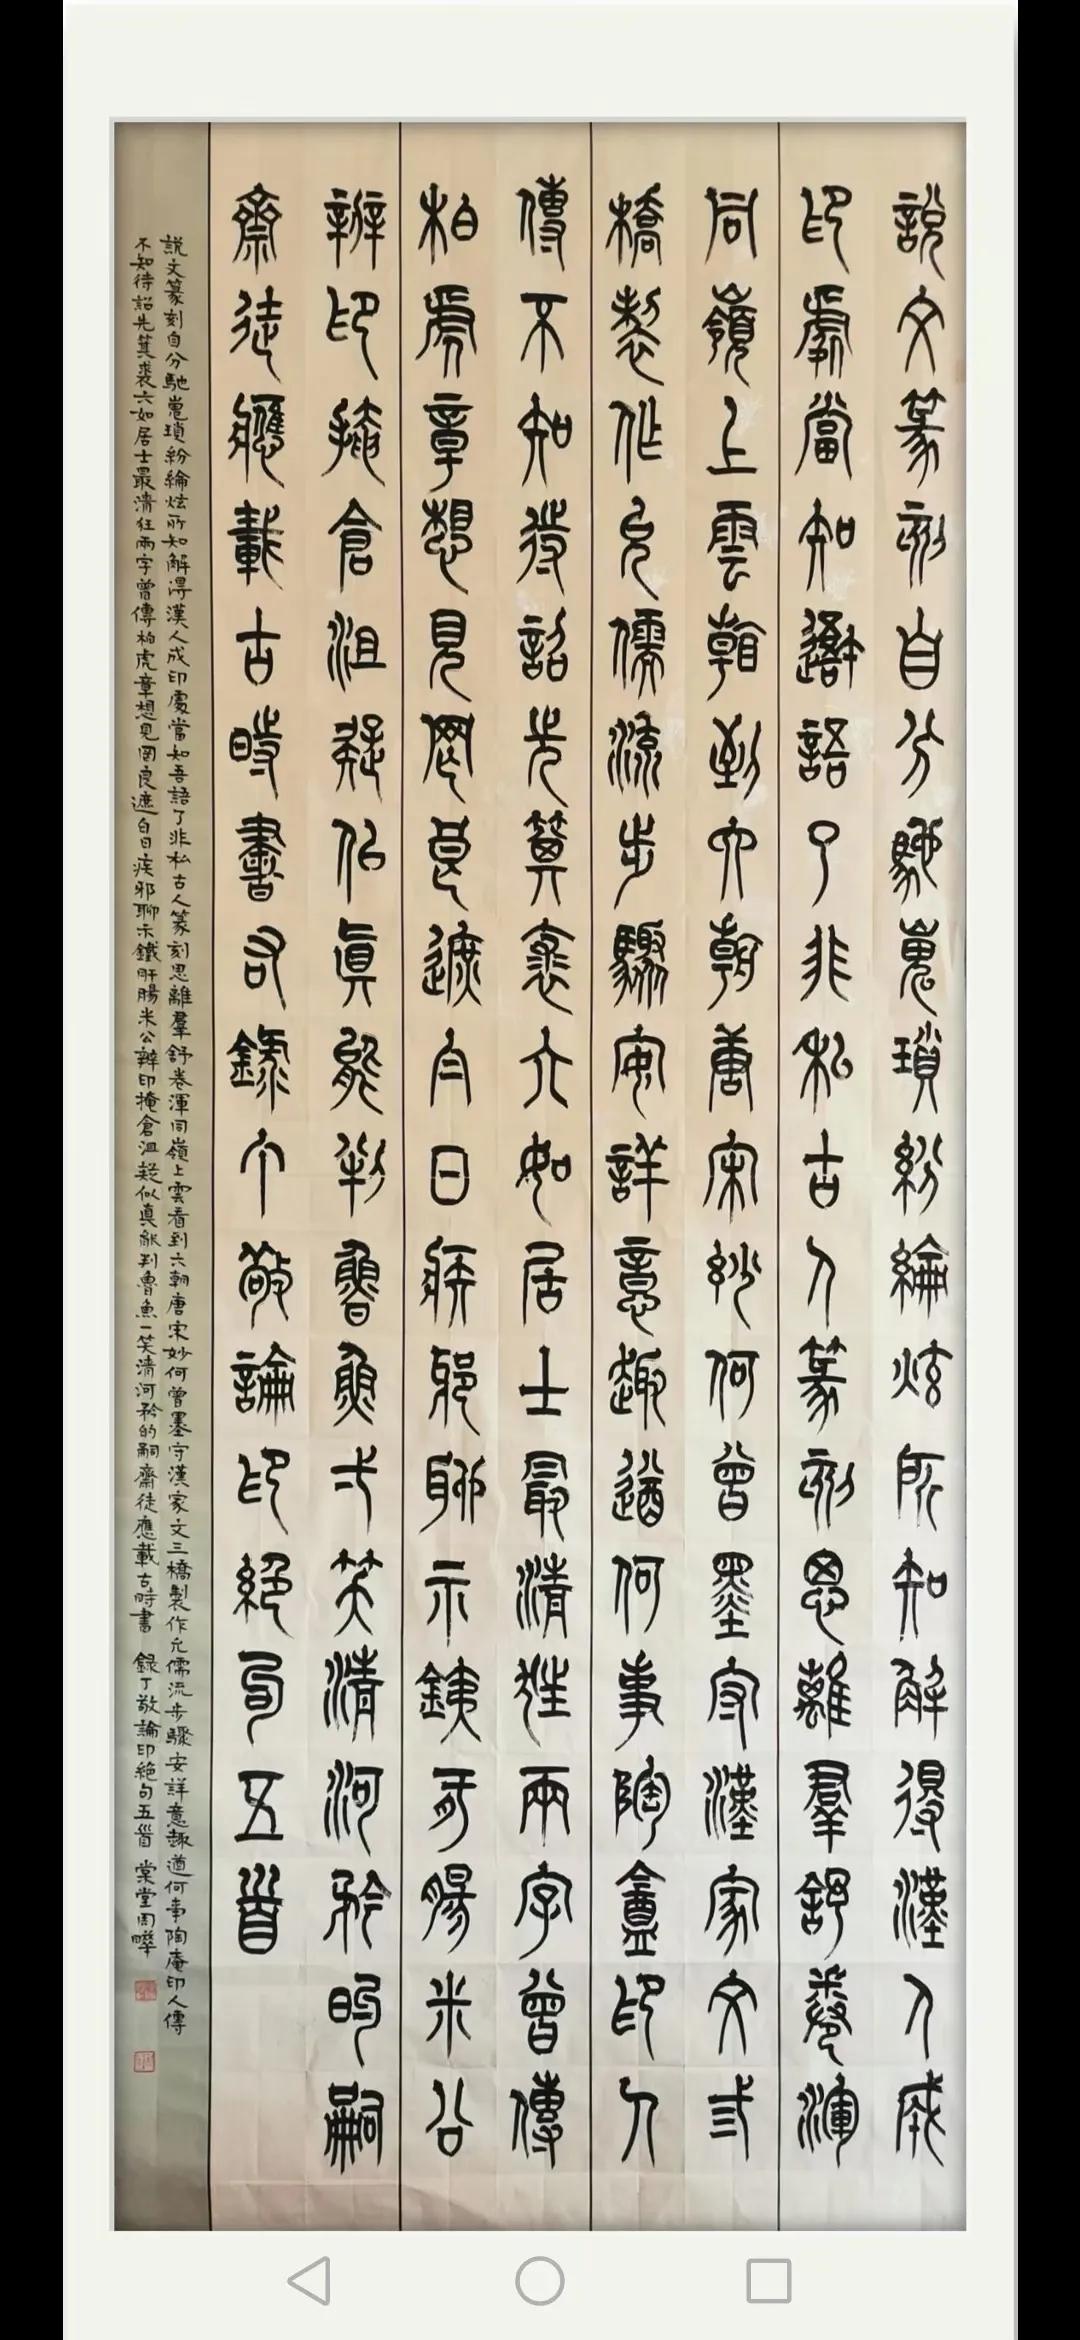 說文篆刻自分馳嵬瑣紛綸炫所知解得漢人成
印處當知吾語了非私古人篆刻思離羣舒卷渾
同嶺上雲看到六朝唐宋妙何曾墨守漢家文三
橋製作允儒流步驟安詳意趣遒何事陶盦印人
傳不知待詔先箕裘六如居士最清狂兩字曾傳
柏虎章想見罔良遮白日疾邪聊示鐵肝腸米公
辧印掩倉沮疑似真能判魯魚一笑清河矜的嗣
齋徒應載古時書 錄丁敬論印絕句五首
說文篆刻自分馳嵬瑣紛綸炫所知解得漢人成印處當知吾語了非私古人篆刻思離羣舒卷渾同嶺上雲看到六朝唐宋妙何曾墨守漢家文三橋製作允儒流步驟安詳意趣遒何事陶庵印人傳
不知待詔先箕裘六如居士最清狂兩字曾傳柏虎章想見罔良遮白日疾邪聊示鐵肝腸米公辧印掩倉沮疑似真能判魯魚一笑清河矜的嗣齋徒應載古時書 録丁敬論印絕句五首 棠堂周